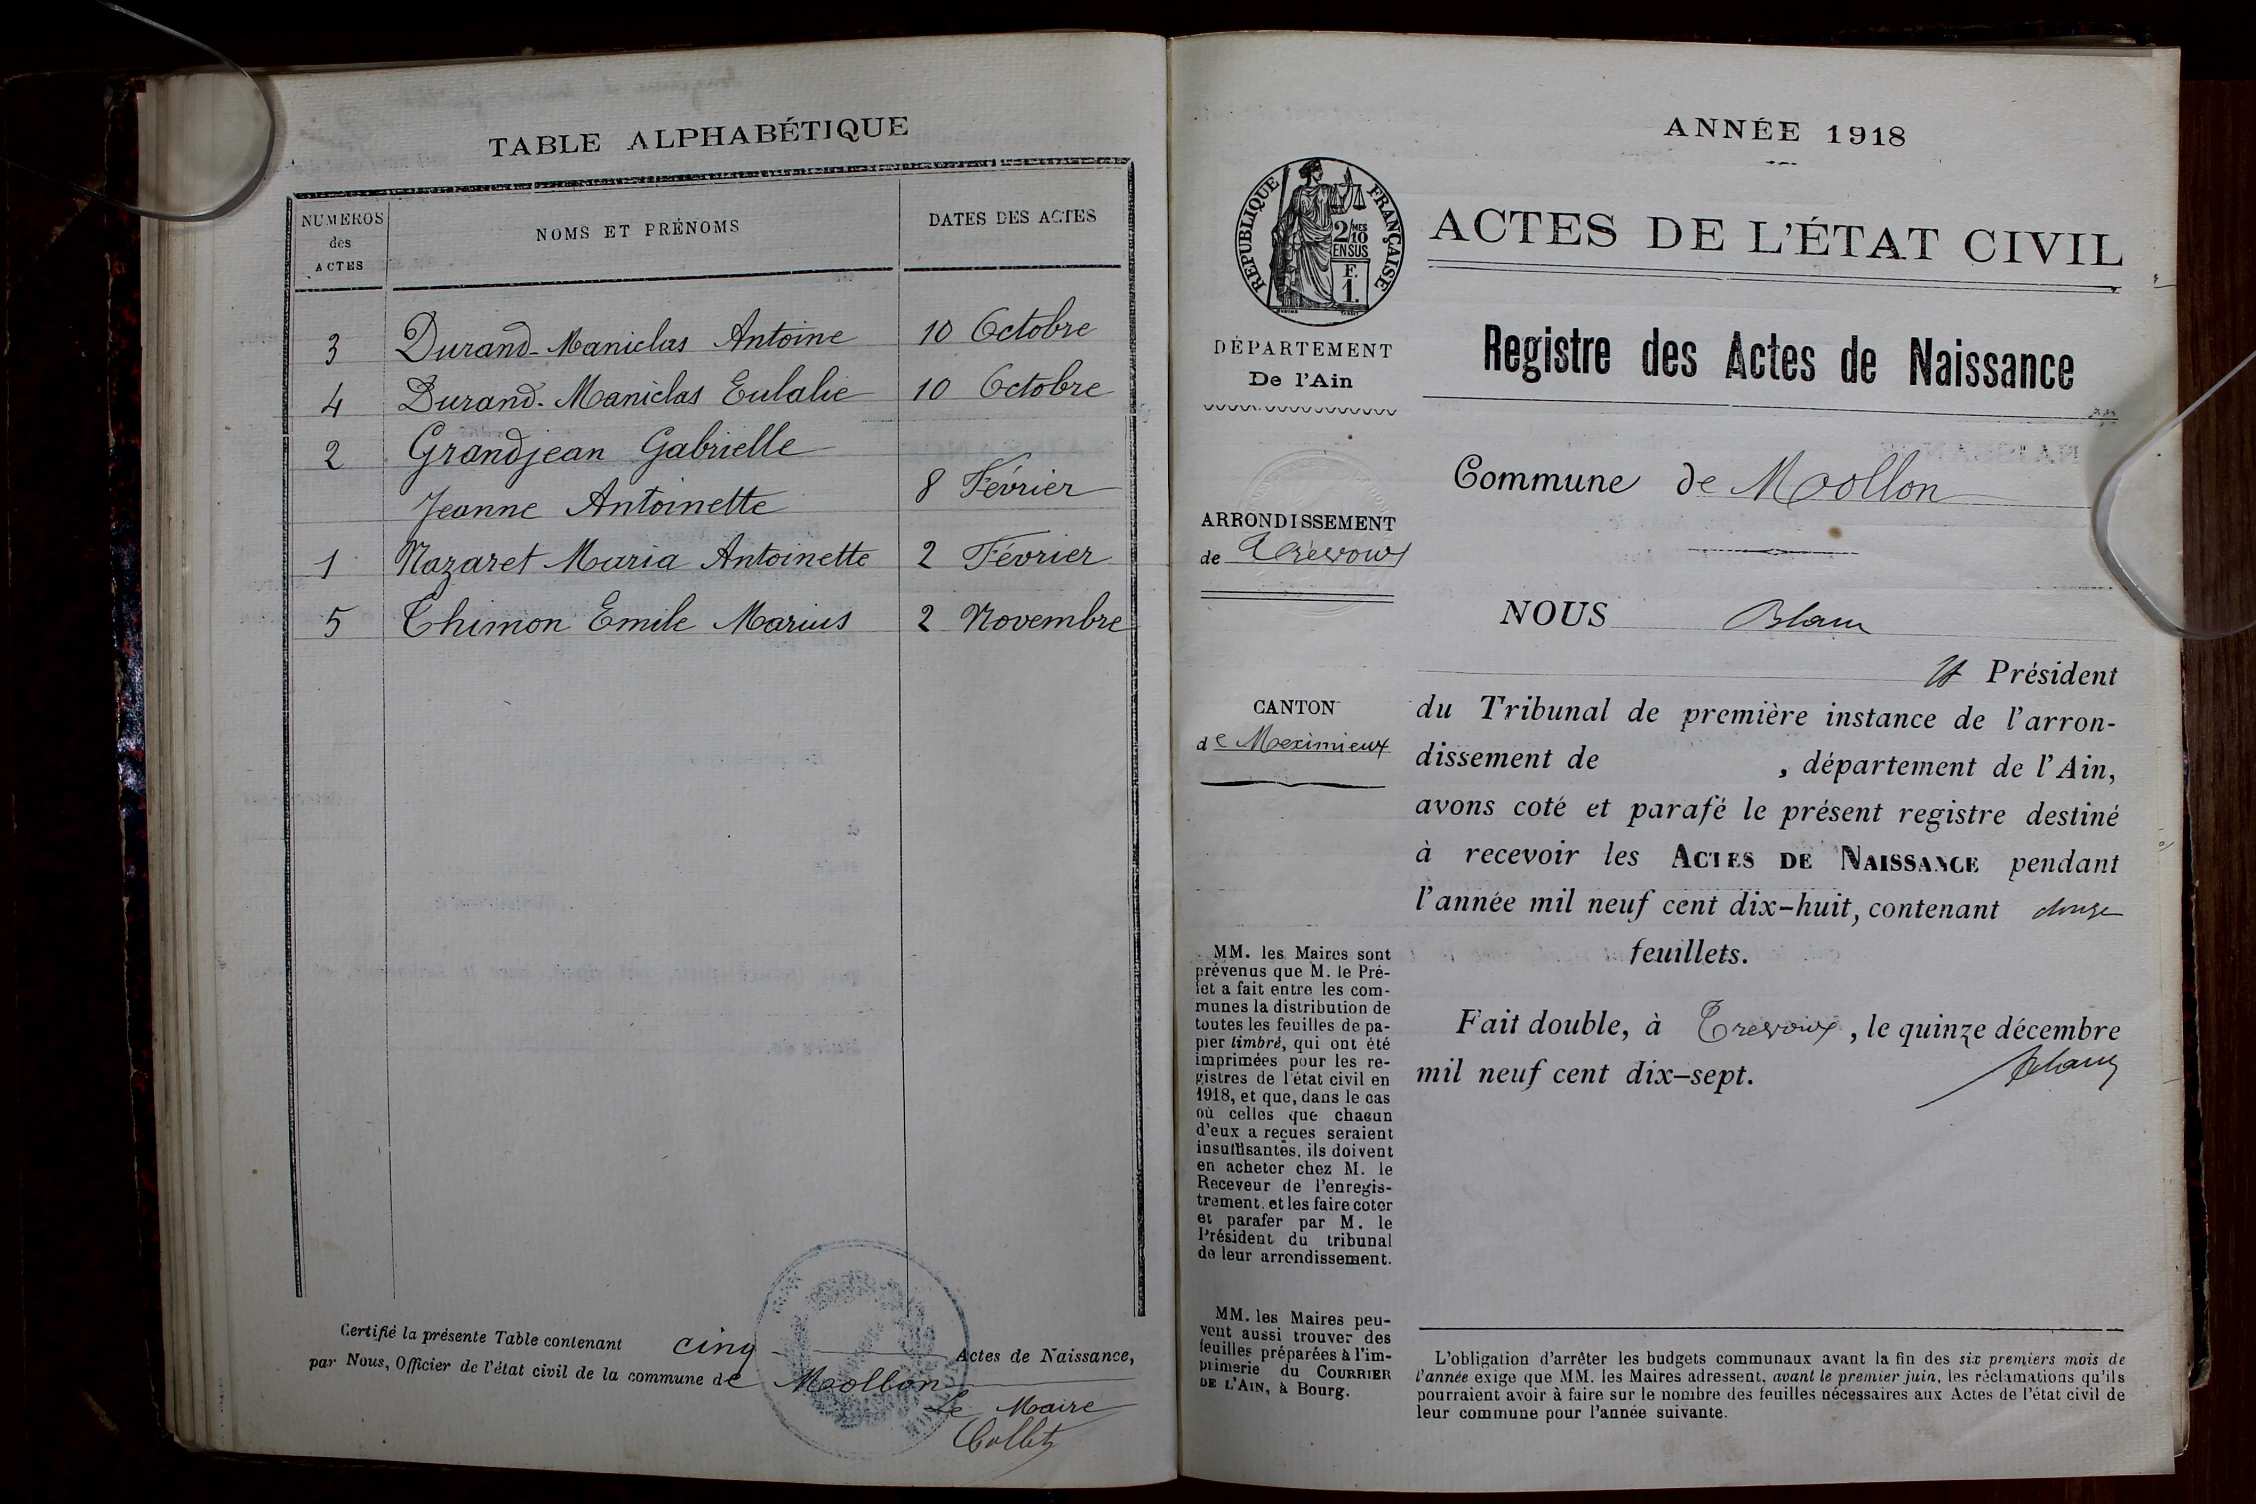 TABLE ALPHABÉTIQUE
NUMEROS des ACTES
NOMS ET PRÉNOMS
DATES DES ACTES
3 Durand-Maniclas Antoine 10 Octobre
4 Durand-Maniclas Eulalie 10 Octobre
2 Grandjean Gabrielle
Jeanne Antoinette 8 Février
1 Nazaret Maria Antoinette 2 Février
5 Thimon Emile Marius 2 Novembre
Certifié la présente Table contenant cinq Actes de Naissance,
par Nous, Officier de l'état civil de la commune de Mollon
Le Maire
Collet
ANNÉE 1918
RÉPUBLIQUE FRANÇAISE
2/10MES
EN SUS
F.
1.
DÉPARTEMENT
De l'Ain
ARRONDISSEMENT
de Trévoux
CANTON
de Meximieux
MM. les Maires sont
prévenus que M. le Pré-
fet a fait entre les com-
munes la distribution de
toutes les feuilles de pa-
pier timbré, qui ont été
imprimées pour les re-
gistres de l'état civil en
1918, et que, dans le cas
où celles que chacun
d'eux a reçues seraient
insuffisantes, ils doivent
en acheter chez M. le
Receveur de l'enregis-
trement, et les faire coter
et parafer par M. le
Président du tribunal
de leur arrondissement.
MM. les Maires peu-
vent aussi trouver des
feuilles préparées à l'im-
primerie du COURRIER
DE L'AIN, à Bourg.
ACTES DE L'ÉTAT CIVIL
Registre des Actes de Naissance
Commune de Mollon
NOUS
Président
du Tribunal de première instance de l'arron-
dissement de , département de l'Ain,
avons coté et parafé le présent registre destiné
à recevoir les ACTES DE NAISSANCE pendant
l'année mil neuf cent dix-huit, contenant douze
feuillets.
Fait double, à Trévoux, le quinze décembre
mil neuf cent dix-sept.
L'obligation d'arrêter les budgets communaux avant la fin des six premiers mois de
l'année exige que MM. les Maires adressent, avant le premier juin, les réclamations qu'ils
pourraient avoir à faire sur le nombre des feuilles nécessaires aux Actes de l'état civil de
leur commune pour l'année suivante.